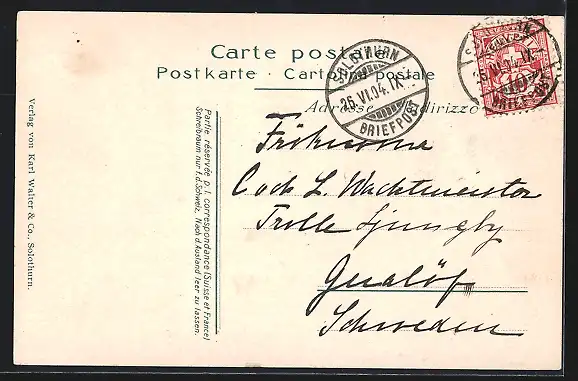 Carte postale
Postkarte · Cartolina postale
SOLOTHURN
26.VI.04.IX
BRIEFPOST
Adresse dirizzo
Friherrarne
C och L. Wachtmeister
Trolle Ljungby
Gualöf
Schweden
Partie réservée p. l. correspondance (Suisse et France)
Schreibraum nur f. d. Schweiz. Nach d. Ausland leer zu lassen.
Verlag von Karl Walter & Co., Solothurn.